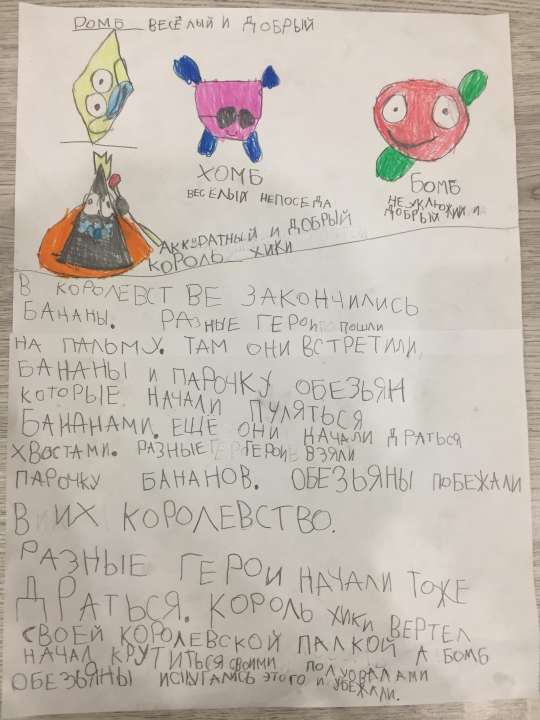 РОМБ ВЕСЁЛЫЙ И ДОБРЫЙ
ХОМБ
ВЕСЕЛЫЙ НЕПОСЕДА
БОМБ
НЕУКЛЮЖИЙ И
ДОБРЫЙ
АККУРАТНЫЙ И ДОБРЫЙ
КОРОЛЬ ХИКИ
В КОРОЛЕВСТВЕ ЗАКОНЧИЛИСЬ
БАНАНЫ. РАЗНЫЕ ГЕРОИ ПОШЛИ
НА ПАЛЬМУ. ТАМ ОНИ ВСТРЕТИЛИ
БАНАНЫ И ПАРОЧКУ ОБЕЗЬЯН
КОТОРЫЕ НАЧАЛИ ПУЛЯТЬСЯ
БАНАНАМИ. ЕЩЕ ОНИ НАЧАЛИ ДРАТЬСЯ
ХВОСТАМИ. РАЗНЫЕ ГЕРОИ ВЗЯЛИ
ПАРОЧКУ БАНАНОВ. ОБЕЗЬЯНЫ ПОБЕЖАЛИ
В ИХ КОРОЛЕВСТВО.
РАЗНЫЕ ГЕРОИ НАЧАЛИ ТОЖЕ
ДРАТЬСЯ. КОРОЛЬ ХИКИ ВЕРТЕЛ
СВОЕЙ КОРОЛЕВСКОЙ ПАЛКОЙ А БОМБ
НАЧАЛ КРУТИТЬСЯ СВОИМИ ПОЛУОВАЛАМИ
ОБЕЗЬЯНЫ ИСПУГАЛИСЬ ЭТОГО И УБЕЖАЛИ.